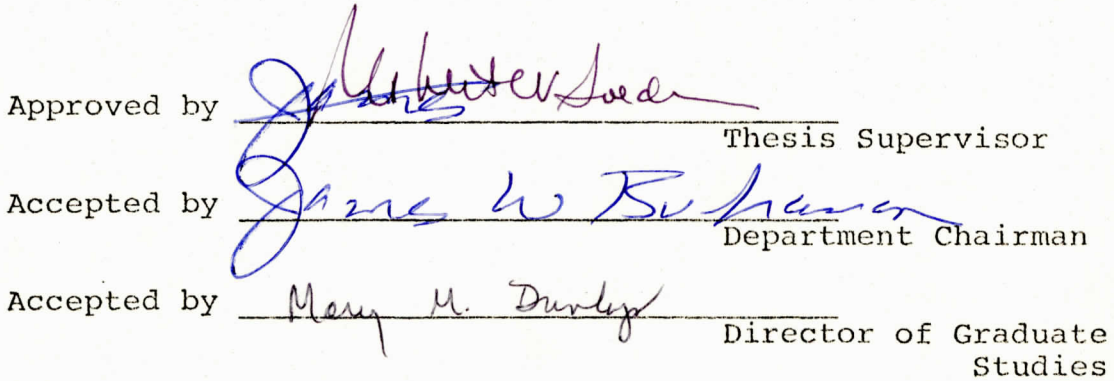 Approved by James
Thesis Supervisor
Accepted by James W Buchanan
Department Chairman
Accepted by Mary M. Dunlap
Director of Graduate
Studies